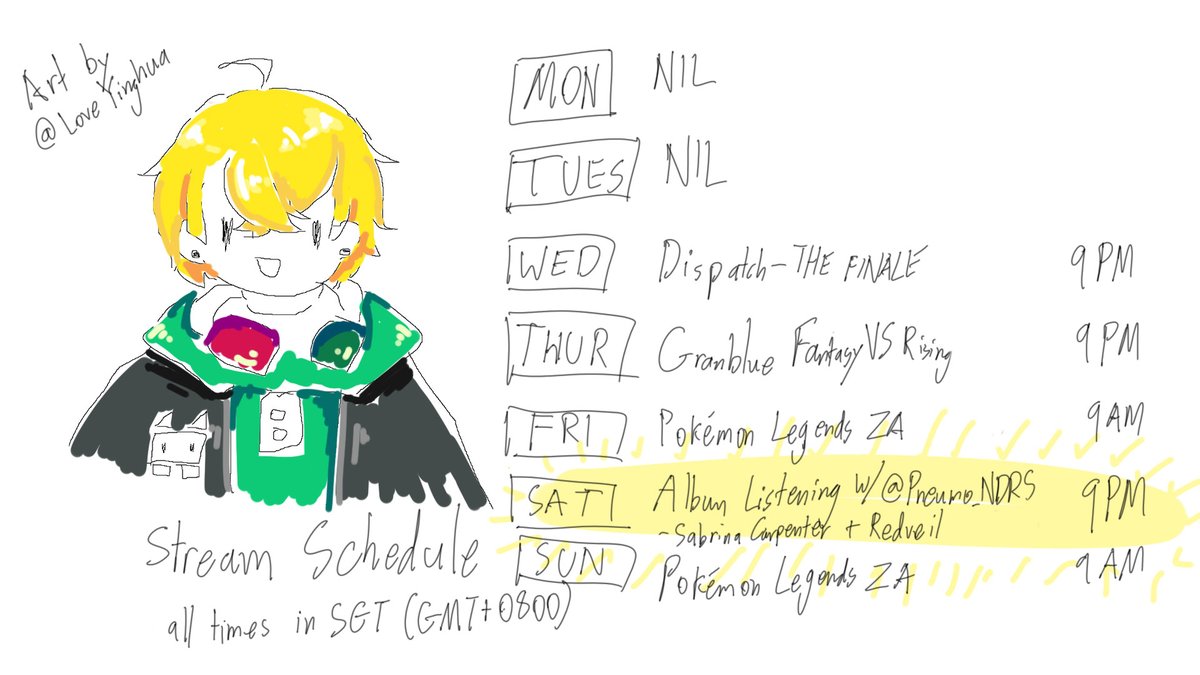 Art by
@LoveYinghua
MON NIL
TUES NIL
WED Dispatch - THE FINALE 9 PM
THUR Granblue Fantasy VS Rising 9 PM
FRI Pokémon Legends ZA 9 AM
SAT Album Listening w/ @Pneumo_NDRS 9 PM
- Sabrina Carpenter + Redveil
SUN Pokémon Legends ZA 9 AM
B
Stream Schedule
all times in SET (GMT+0800)